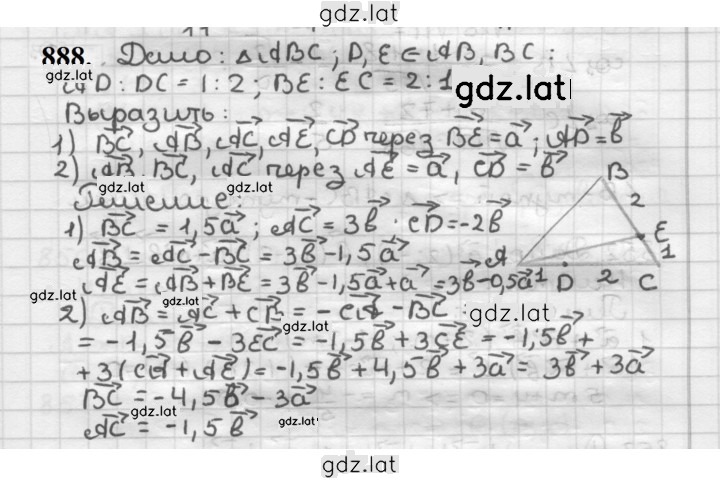 gdz.lat
888. Дано: △ABC; D, E ∈ AB, BC;
gdz.lat
AD : DC = 1 : 2; BE : EC = 2 : 1
gdz.lat
Выразить:
1) BC⃗, AB⃗, AC⃗, AE⃗, CD⃗ через BE⃗ = a⃗; AD⃗ = b⃗
2) AB⃗ BC⃗, AC⃗ через AE⃗ = a⃗, CD⃗ = b⃗
gdz.lat gdz.lat
Решение:
1) BC⃗ = 1,5a⃗; AC⃗ = 3b⃗ · CD⃗ = -2b⃗
AB⃗ = AC⃗ - BC⃗ = 3b⃗ - 1,5a⃗
AE⃗ = AB⃗ + BE⃗ = 3b⃗ - 1,5a⃗ + a⃗ = 3b⃗ - 0,5a⃗
gdz.lat
2) AB⃗ = AC⃗ + CB⃗ = - CA⃗ - BC⃗ =
gdz.lat gdz.lat
= -1,5b⃗ - 3EC⃗ = -1,5b⃗ + 3CE⃗ = -1,5b⃗ +
+ 3(CA⃗ + AE⃗) = -1,5b⃗ + 4,5b⃗ + 3a⃗ = 3b⃗ + 3a⃗
BC⃗ = -4,5b⃗ - 3a⃗
AC⃗ = -1,5b⃗
gdz.lat gdz.lat
B
2
E
1
A 1 D 2 C
gdz.lat